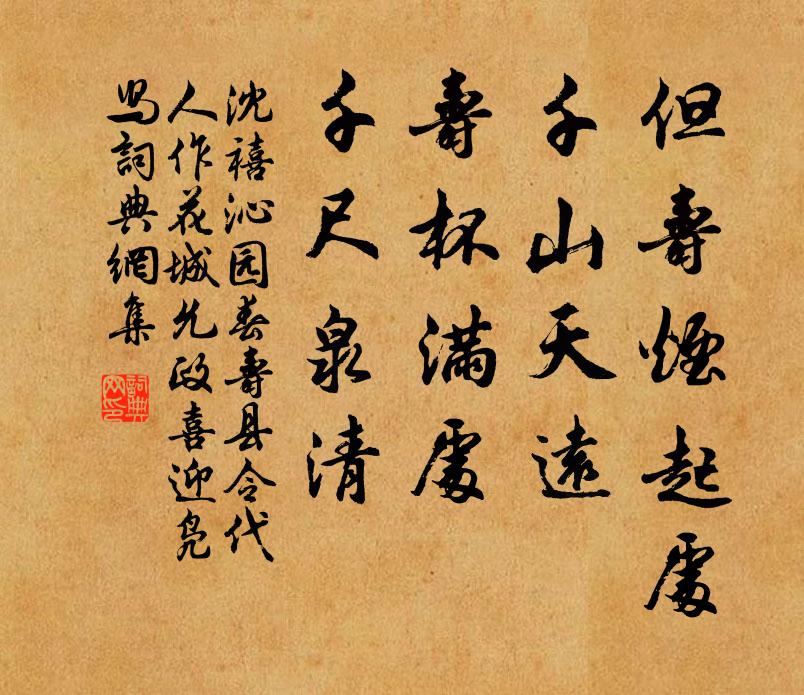 但壽煙起處
千山天遠
壽杯滿處
千尺泉清
沈禧沁园春壽县令代
人作花城允政喜迎凫
舃詞典網集
詞典网印